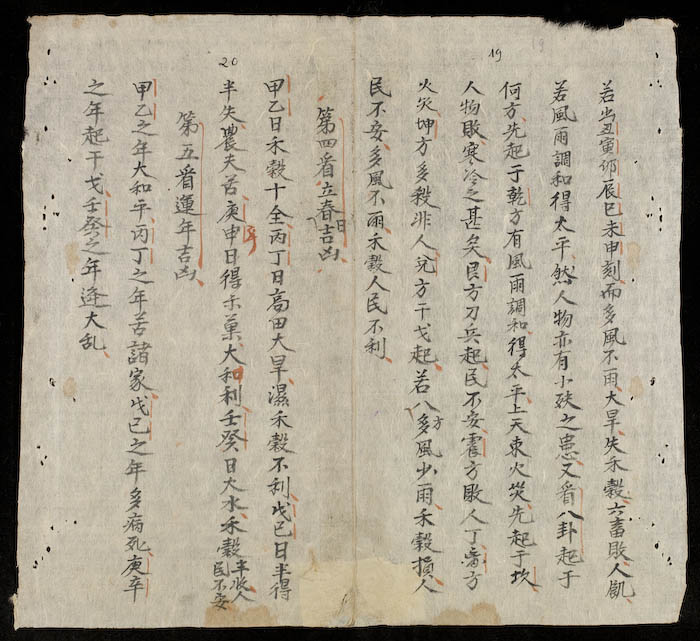 19
若当丑寅卯辰巳未申刻而多風不雨大旱失禾穀六畜敗人飢
若風雨調和得太平然人物亦有小殃之患又看八卦起于
何方先起于乾方有風雨調和得太平上天東火災先起于坎
人物敗寒冷之甚矣艮方刀兵起民不安震方敗人丁離方
火災坤方多殺非人兌方干戈起若八方多風少雨禾穀損人
民不安多風不雨禾穀人民不利
第四看立春日吉凶
20
甲乙日禾穀十全丙丁日高田大旱濕禾穀不利戊己日半得
半失農夫苦庚辛日得禾菓大和利壬癸日大水禾穀半收人民不安
第五看運年吉凶
甲乙之年大和平丙丁之年苦諸家戊己之年多病死庚辛
之年起干戈壬癸之年逢大乱